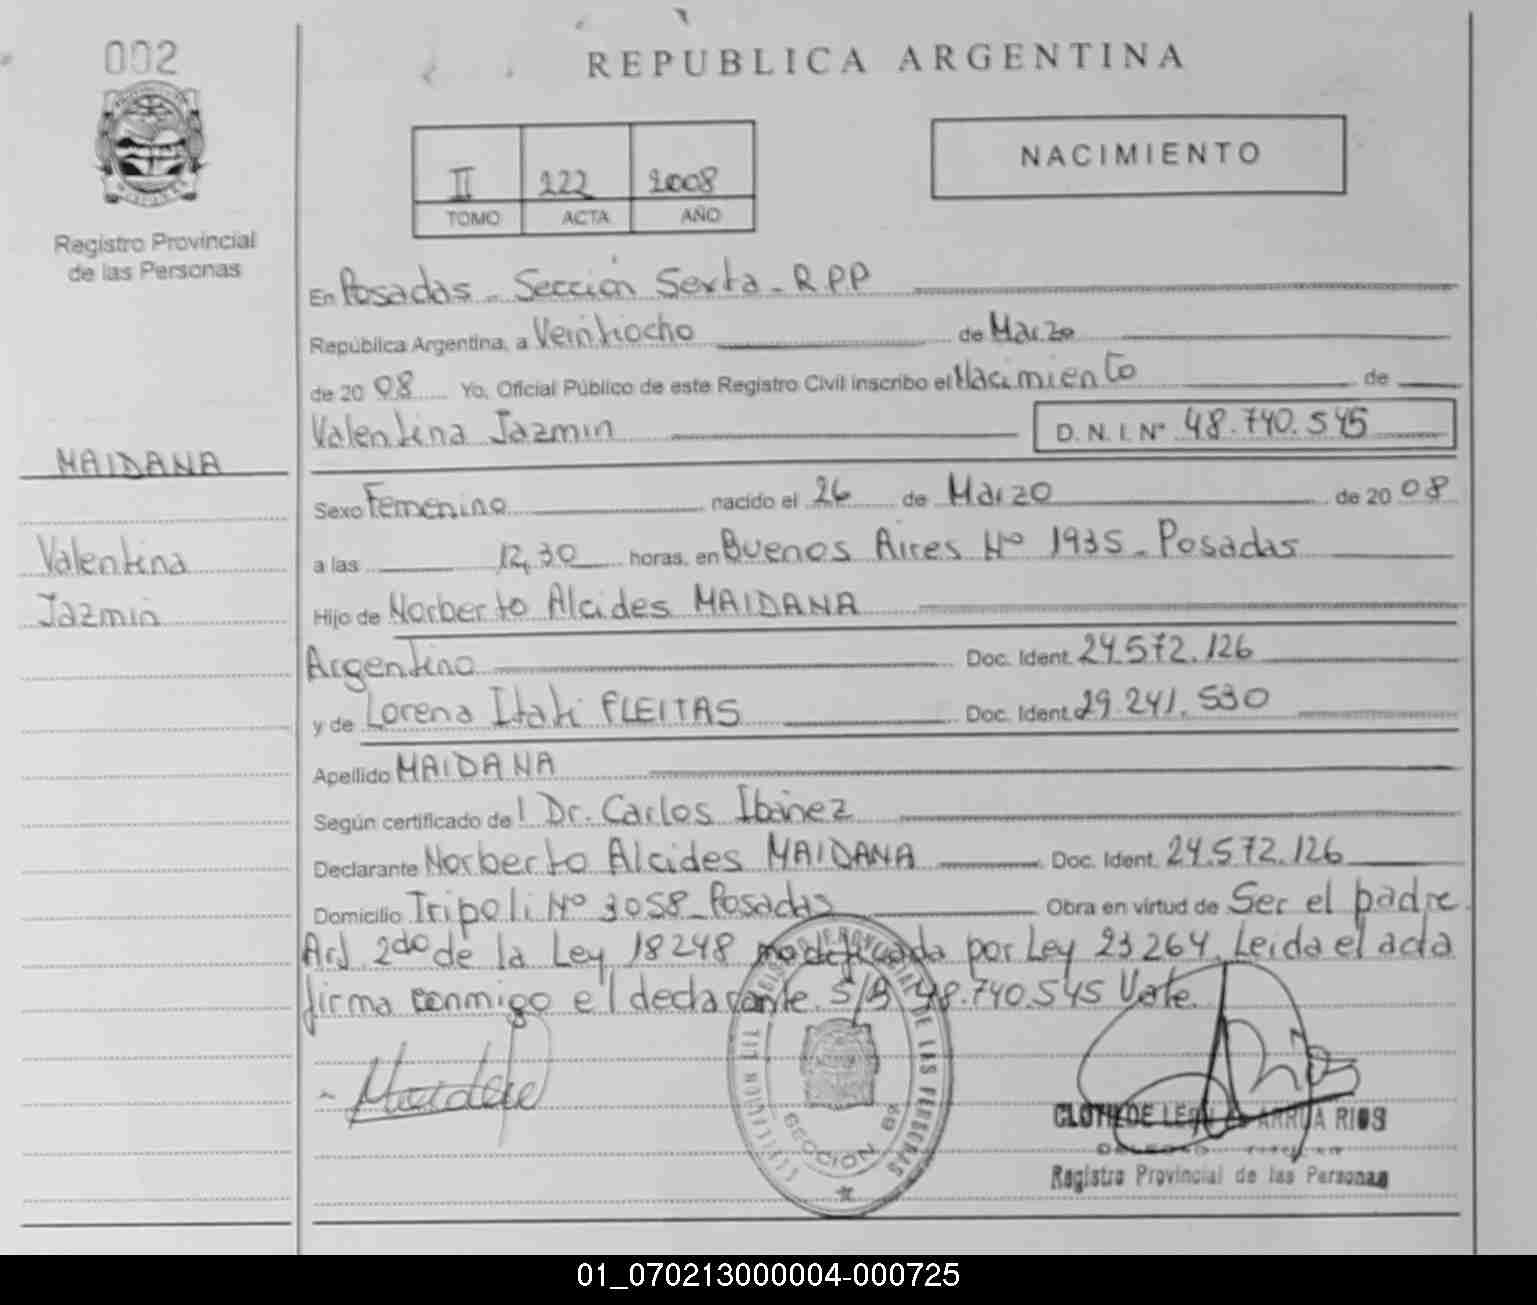 002
Registro Provincial
de las Personas
MAIDANA
Valentina
Jazmin
REPUBLICA ARGENTINA
NACIMIENTO
II 222 2008
TOMO ACTA AÑO
En Posadas - Sección Sexta - R.P.P
República Argentina, a Veintiocho de Marzo
de 20 08 Yo, Oficial Público de este Registro Civil inscribo el Nacimiento de
Valentina Jazmin D.N.I. Nº 48.740.545
Sexo Femenino nacido el 26 de Marzo de 20 08
a las 12,30 horas, en Buenos Aires Nº 1935 - Posadas
Hijo de Norberto Alcides MAIDANA
Argentino Doc. Ident. 24.572.126
y de Lorena Itati FLEITAS Doc. Ident. 29.241.530
Apellido MAIDANA
Según certificado del Dr. Carlos Ibañez
Declarante Norberto Alcides MAIDANA Doc. Ident. 24.572.126
Domicilio Tripoli Nº 3058 - Posadas Obra en virtud de Ser el padre.
Art 2do de la Ley 18248 modificada por Ley 23264. Leida el acta
firma conmigo el declarante. S/B 48.740.545 Vale.
SECCION 6ª
DE LAS PERSONAS
CLOTILDE ARRUA RIOS
Registro Provincial de las Personas
01_070213000004-000725